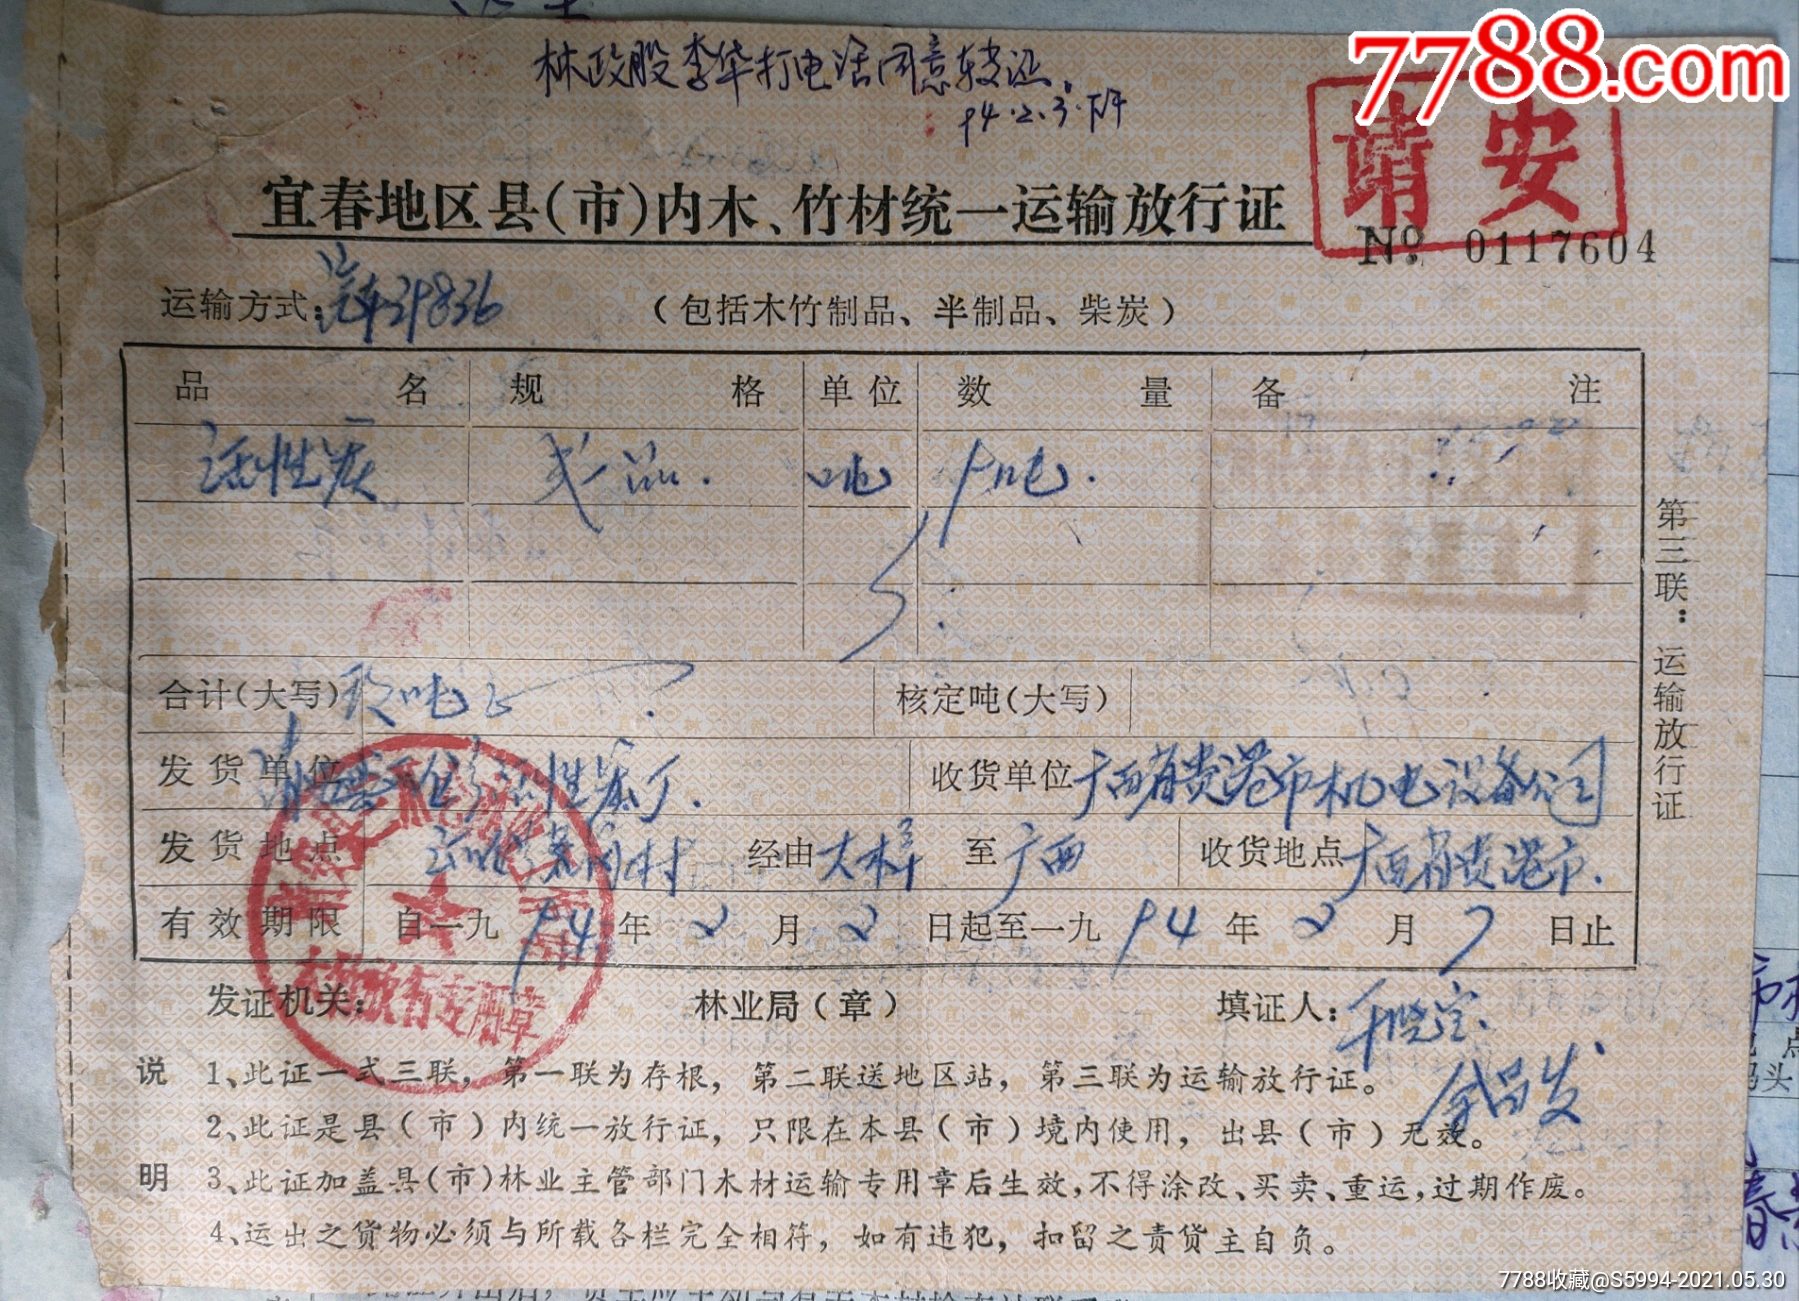 7788.com
林政股李华打电话同意转证.
94.2.3.下午
靖安
宜春地区县(市)内木、竹材统一运输放行证
No: 0117604
运输方式:汽车39836
(包括木竹制品、半制品、柴炭)
品名 规格 单位 数量 备注
活性炭 吨 9吨.
合计(大写) 玖吨正 核定吨(大写)
发货单位 活性炭厂. 收货单位 广西省贵港市机电设备公司
发货地点 经由 大梓 至 广西 收货地点 广西省贵港市.
有效期限 自一九94年2月2日起至一九94年2月7日止
发证机关: 林业局(章) 填证人:
第三联:运输放行证
说明
1、此证一式三联,第一联为存根,第二联送地区站,第三联为运输放行证。
2、此证是县(市)内统一放行证,只限在本县(市)境内使用,出县(市)无效。
3、此证加盖县(市)林业主管部门木材运输专用章后生效,不得涂改、买卖、重运,过期作废。
4、运出之货物必须与所载各栏完全相符,如有违犯,扣留之责货主自负。
7788收藏@S5994-2021.05.30